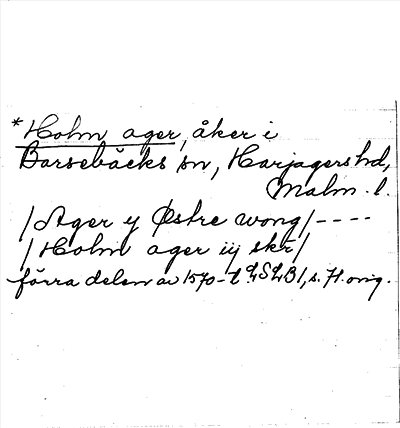 *Holm ager, åker i
Barsebäcks sn, Harjagers hd,
Malm. l.
/Ager y Østre wong/----
/Holm ager iij skr/
förra delen av 1570-t LSLB1, s. 71. orig.